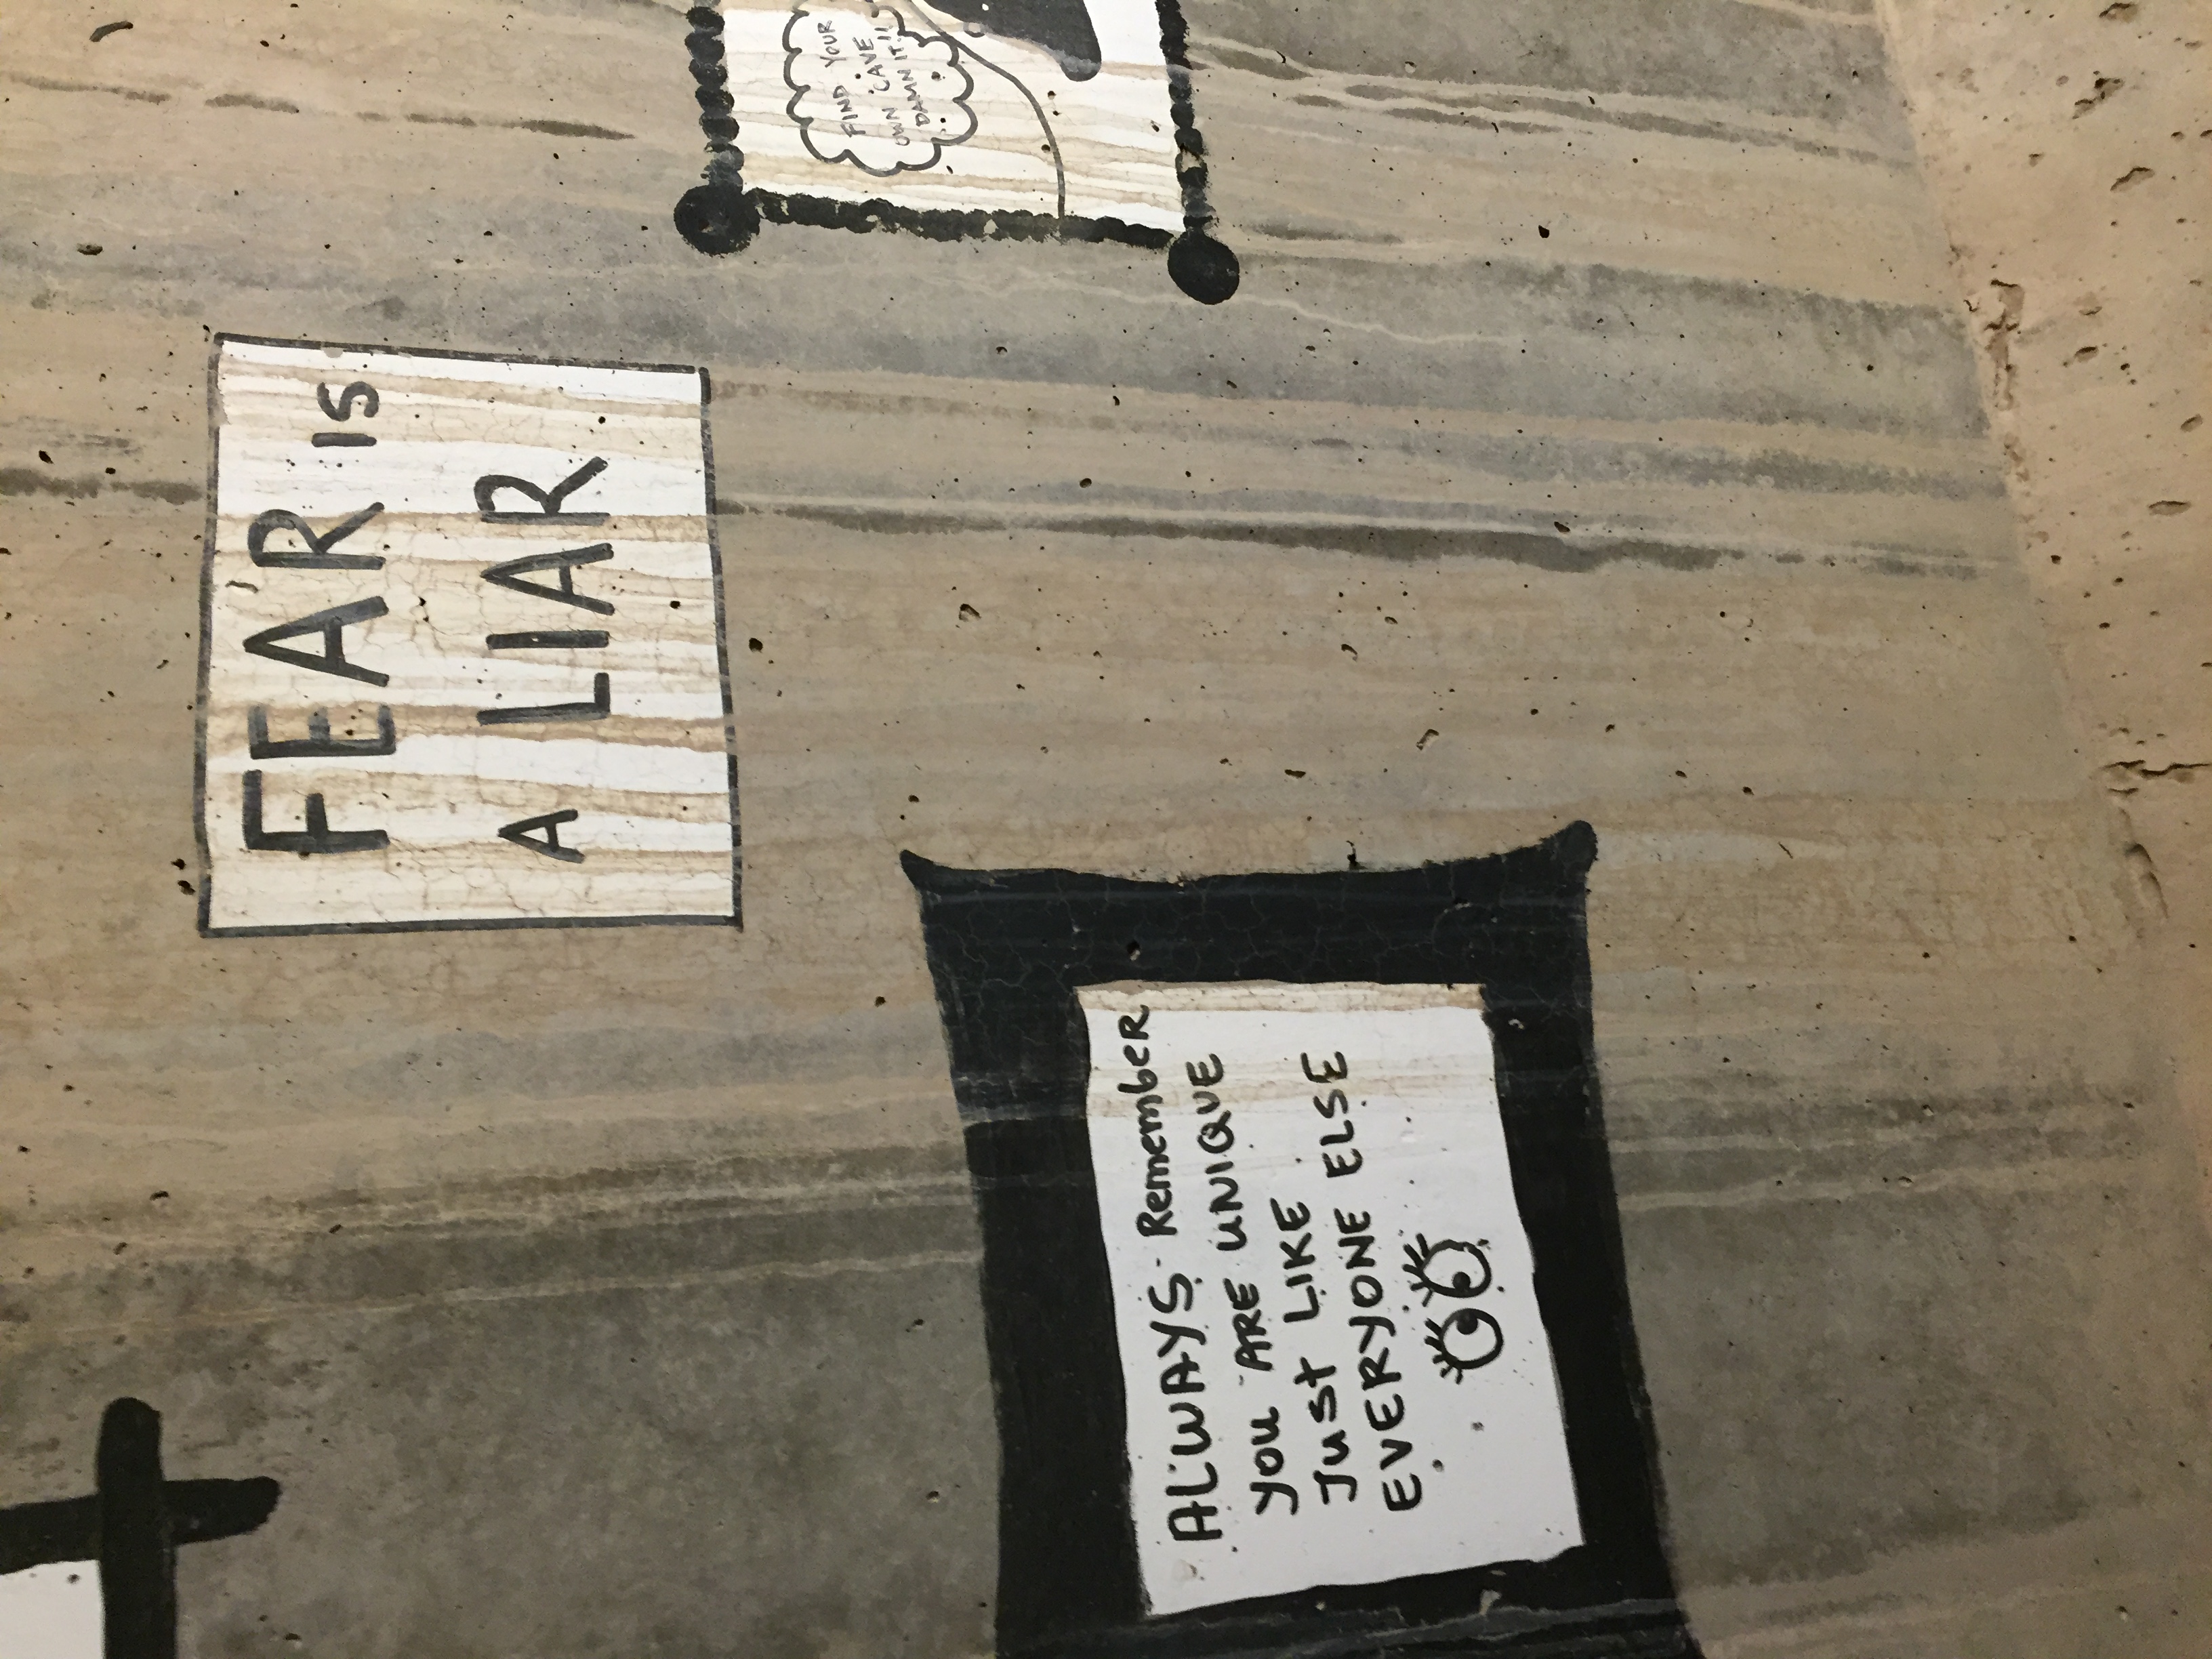 FEAR IS
A LIAR
FIND YOUR
OWN CAVE
DAMN IT!!
ALWAYS Remember
you ARE UNIQUE
Just LIKE
EVERYONE ELSE